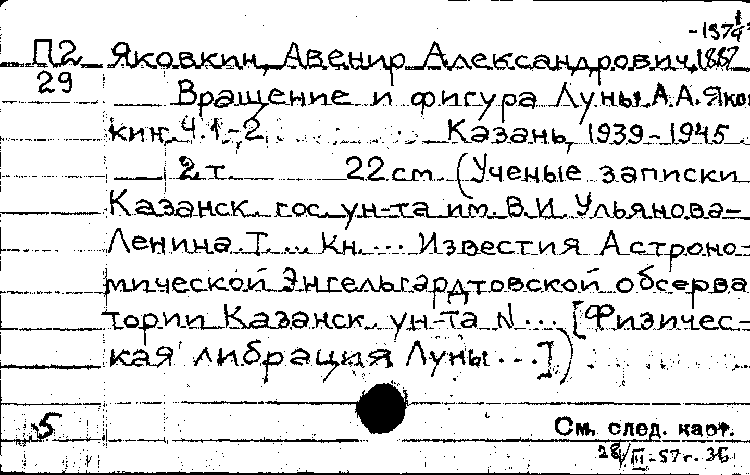 -1974
П2 Яковкин, Авенир Александрович, 1887
29 Вращение и фигура Луны. А.А. Яков
кин. Ч.1-2 Казань, 1939-1945
2 т. 22 cm (Ученые записки
Казанск. гос. ун-та им. В.И. Ульянова-
Ленина. Т. ... Кн. ... Известия Астроно-
мической Энгельгардтовской обсерва
тории Казанск. ун-та N ... [Физичес-
кая либрация Луны ...])
5 См. след. карт.
28/III-57 г. ЗБ